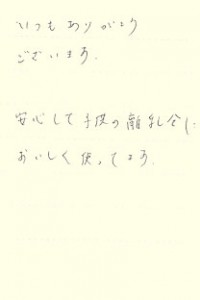 いつもありがとう
ございます.
安心して子供の離乳食に
おいしく使ってます.